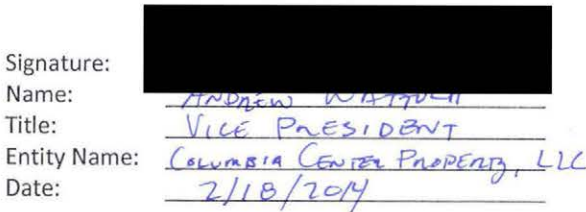 Signature:
Name: ANDREW
Title: VICE PRESIDENT
Entity Name: COLUMBIA CENTER PROPERTY, LLC
Date: 2/18/2014